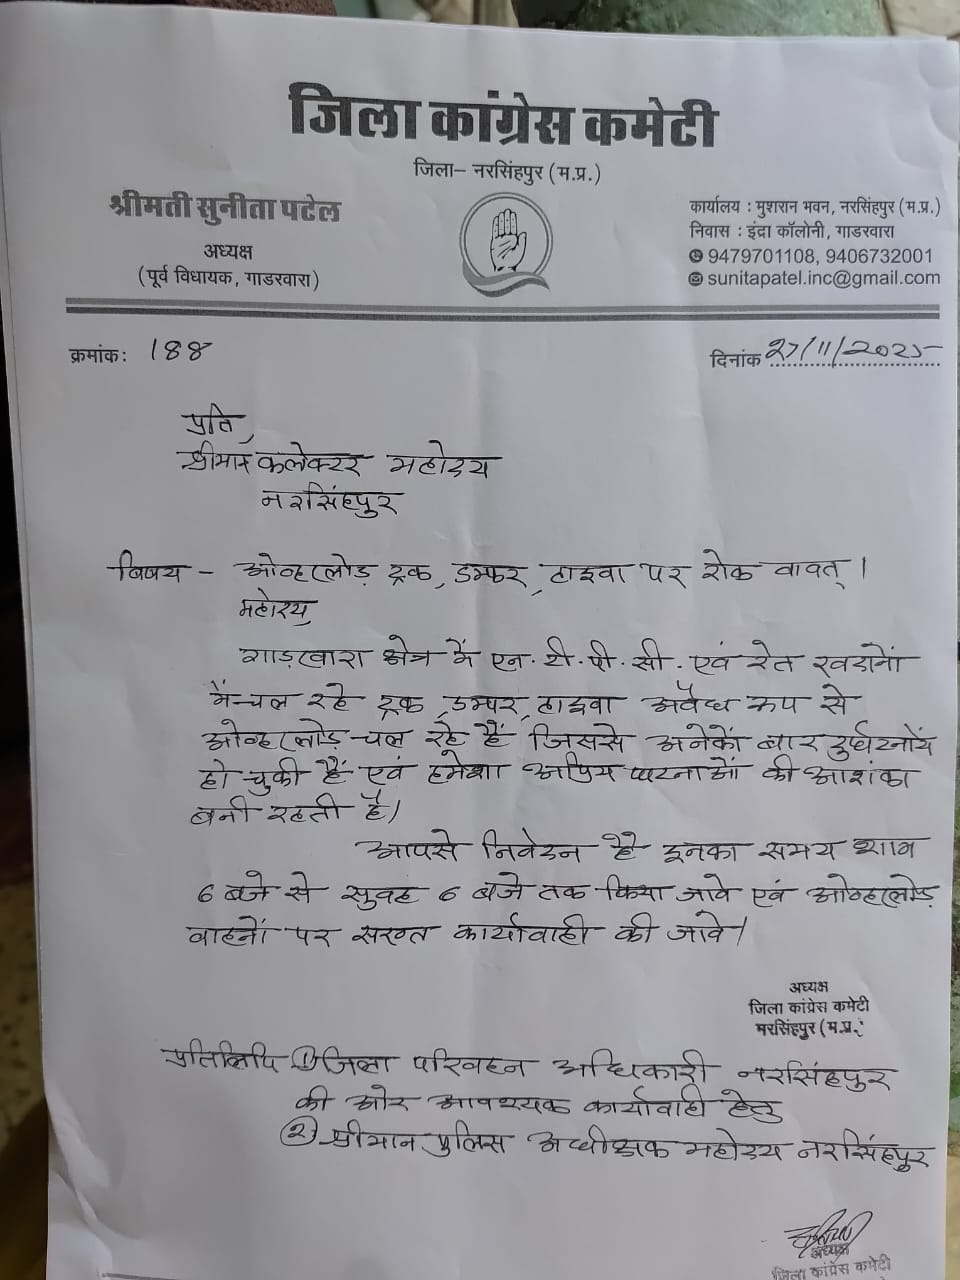 जिला कांग्रेस कमेटी
जिला– नरसिंहपुर (म.प्र.)
श्रीमती सुनीता पटेल
अध्यक्ष
(पूर्व विधायक, गाडरवारा)
कार्यालय : मुशरान भवन, नरसिंहपुर (म.प्र.)
निवास : इंद्रा कॉलोनी, गाडरवारा
9479701108, 9406732001
sunitapatel.inc@gmail.com
क्रमांक: 188
दिनांक 27/11/2025
प्रति,
श्रीमान कलेक्टर महोदय
नरसिंहपुर
विषय - ओव्हरलोड़ ट्रक, डम्फर, हाइवा पर रोक वावत्।
महोदय,
गाडरवारा क्षेत्र में एन.टी.पी.सी. एवं रेत खदानों
में चल रहे ट्रक, डम्फर, हाइवा अवैध रूप से
ओव्हरलोड़ चल रहे हैं जिससे अनेकों बार दुर्घटनायें
हो चुकी हैं एवं हमेशा अप्रिय घटनाओं की आशंका
बनी रहती है।
आपसे निवेदन है इनका समय शाम
6 बजे से सुवह 6 बजे तक किया जावे एवं ओव्हरलोड़
वाहनों पर सख्त कार्यावाही की जावे।
अध्यक्ष
जिला कांग्रेस कमेटी
नरसिंहपुर (म.प्र.)
प्रतिलिपि ① जिला परिवहन अधिकारी नरसिंहपुर
की ओर आवश्यक कार्यावाही हेतु
② श्रीमान पुलिस अधीक्षक महोदय नरसिंहपुर
अध्यक्ष
जिला कांग्रेस कमेटी